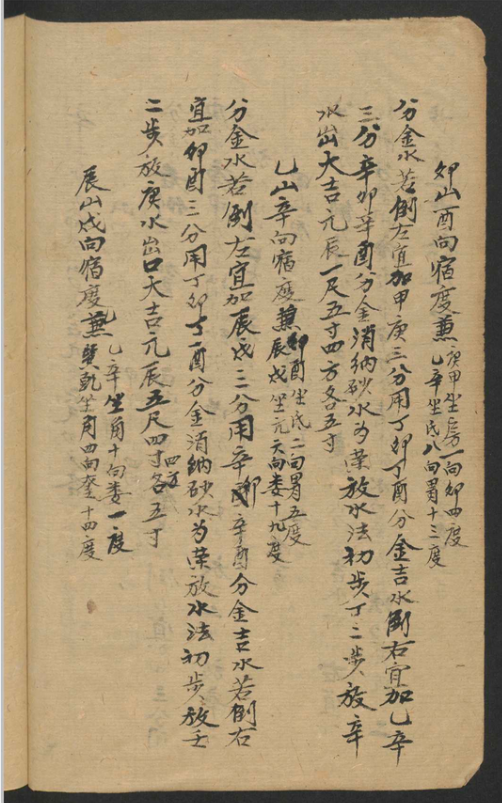 卯山酉向宿度兼庚甲坐房一向卯四度
乙辛坐氐八向胃十三度
分金水若倒左宜加甲庚三分用丁卯丁酉分金吉水倒右宜加乙辛
三分辛卯辛酉分金消納砂水為榮放水法初步丁二步放辛
水出大吉元辰一尺五寸四方各五寸
乙山辛向宿度兼卯酉坐氐二向胃五度
辰戌坐亢六向婁十九度
分金水若倒左宜加辰戌三分用辛卯辛酉分金吉水若倒右
宜加卯酉三分用丁卯丁酉分金消納砂水為榮放水法初步放壬
二步放庚水出口大吉元辰五尺四寸四方各五寸
辰山戌向宿度兼乙辛坐角十向婁一度
巽乾坐角四向奎十四度